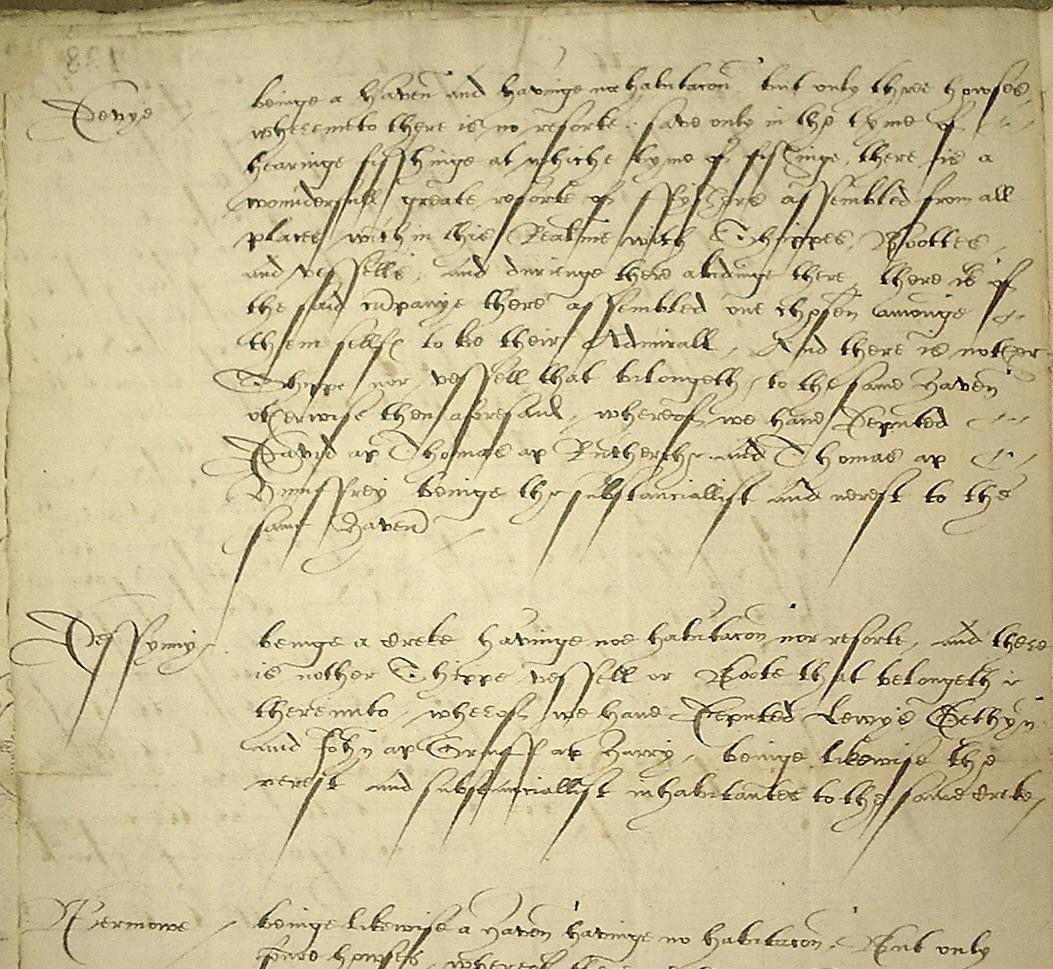 138
Devye beinge a haven and havinge no habitacon but only three howses
whereunto there is no resorte save only in the tyme of
hearinge fisshinge at whiche tyme of fisshinge there is a
wounderfull greate resorte of ffyshers assembled from all
places within this Realme with Shippes Bootes
and vessells and duringe there abidinge there there is of
the said cumpanye there assembled one chosen amonge
them selfes to be their Admirall And there is nother
Shippe nor vessell that belongeth to the same haven
otherwise then aforesaid whereof we have Deputed
David ap Thomas ap Rutherche and Thomas ap
Humffrey beinge the substanciallist and nerest to the
same haven
Dessynny beinge a Creke havinge noe habitacon nor resorte and there
is nother Shippe vessell or Boote that belongeth
thereunto whereof we have Deputed Lewys Gethyn
and John ap Gruff ap Harry beinge likewise the
nerest and substanciallist inhabitantes to the same Creke
Bermowe beinge likewise a haven havinge no habitacon But only
foure howses